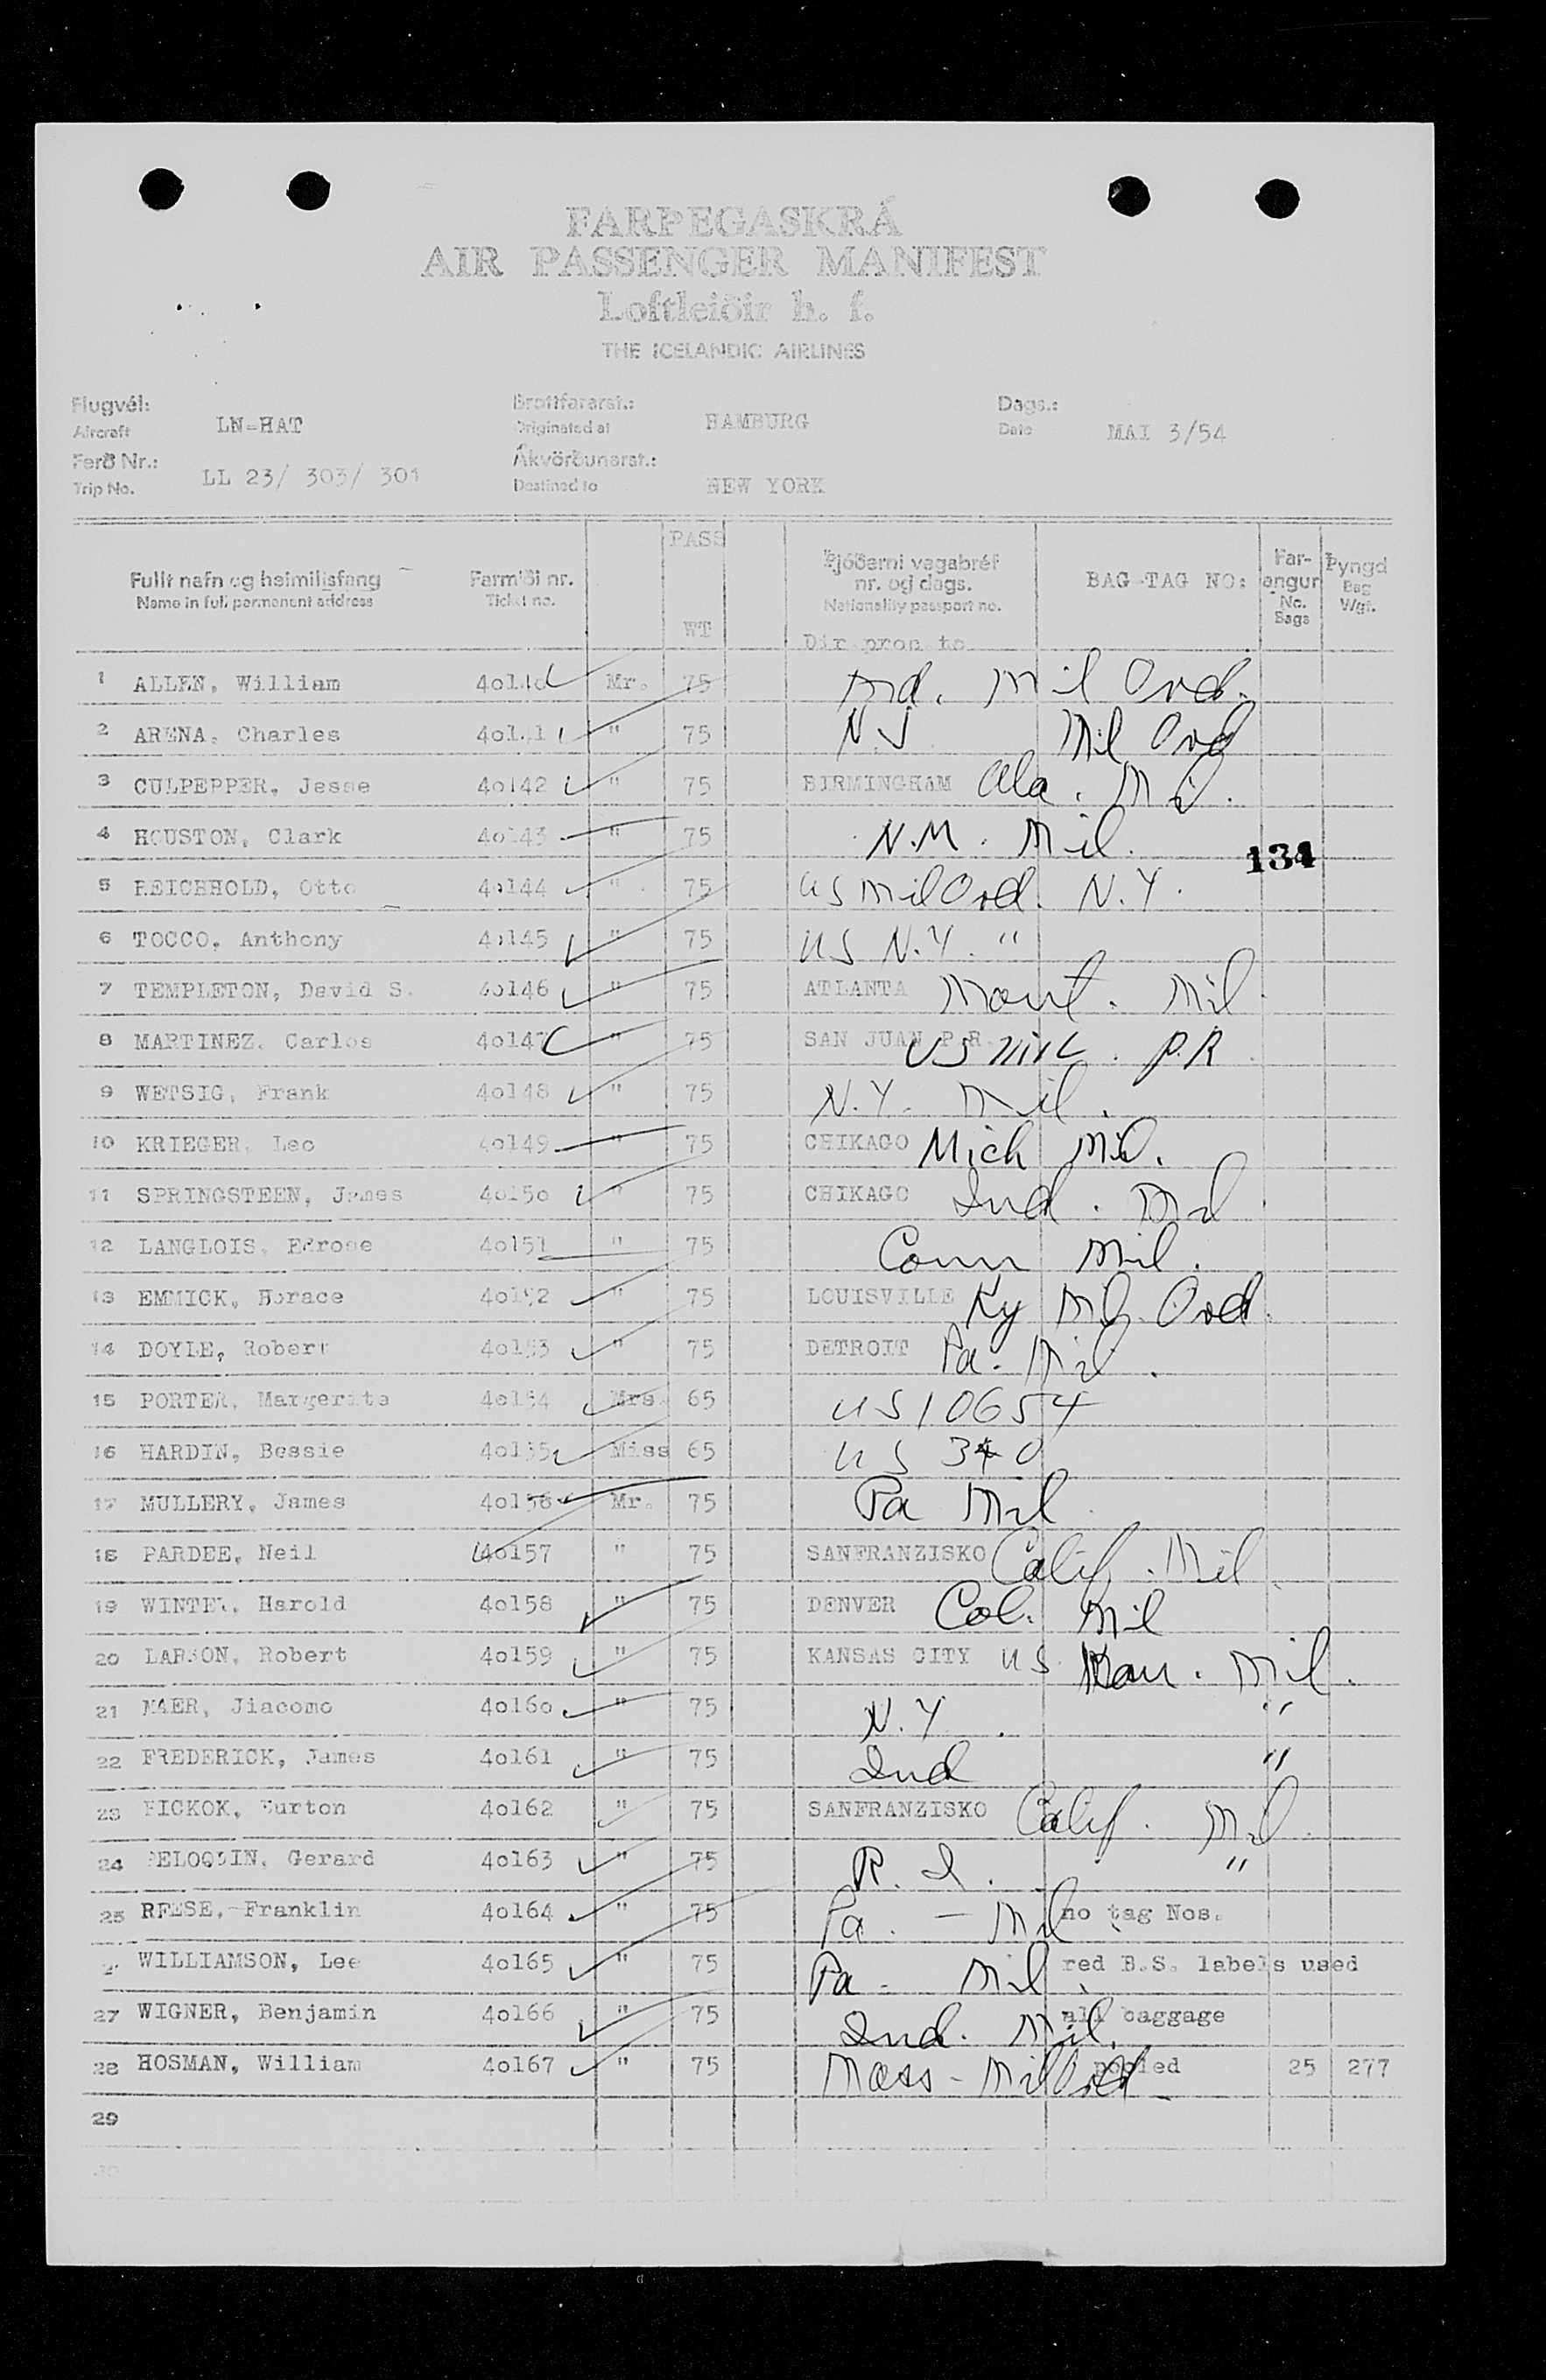 FARÞEGASKRÁ
AIR PASSENGER MANIFEST
Loftleiðir h. f.
THE ICELANDIC AIRLINES
Flugvél: Brottfararst.: Dags.:
Aircraft LN-HAT Originated at HAMBURG Date MAI 3/54
Ferð Nr.: Ákvörðunarst.:
Trip No. LL 23/ 303/ 301 Destined to NEW YORK
PASS
Fullt nafn og heimilisfang Farmiði nr. Þjóðerni vegabréf nr. og dags. BAG-TAG NO: Far-angur Þyngd
Name in full permanent address Ticket no. WT Nationality passport no. No. Bags Bag Wgt.
1 ALLEN, William 40140 Mr. 75 Md. Mil Ord.
2 ARENA, Charles 40141 " 75 N.J. Mil Ord
3 CULPEPPER, Jesse 40142 " 75 BIRMINGHAM Ala. Mil.
4 HOUSTON, Clark 40143 " 75 N.M. Mil.
134
5 REICHHOLD, Otto 40144 " 75 US Mil Ord. N.Y.
6 TOCCO, Anthony 40145 " 75 US N.Y. "
7 TEMPLETON, David S. 40146 " 75 ATLANTA Mont. Mil.
8 MARTINEZ, Carlos 40147 " 75 SAN JUAN P.R. US Mil. P.R.
9 WETSIG, Frank 40148 " 75 N.Y. Mil.
10 KRIEGER, Leo 40149 " 75 CHIKAGO Mich Mil.
11 SPRINGSTEEN, James 40150 " 75 CHIKAGO Ind. Mil
12 LANGLOIS, 40151 " 75 Conn Mil.
13 EMMICK, Horace 40152 " 75 LOUISVILLE Ky Mil. Ord.
14 DOYLE, Robert 40153 " 75 DETROIT Pa. Mil.
15 PORTER, Margerite 40154 Mrs. 65 US 10654
16 HARDIN, Bessie 40155 Miss 65 US 340
17 MULLERY, James 40156 Mr. 75 Pa Mil
18 PARDEE, Neil 40157 " 75 SANFRANZISKO Calif. Mil
19 WINTER, Harold 40158 " 75 DENVER Col. Mil
20 LARSON, Robert 40159 " 75 KANSAS CITY US Kan. Mil.
21 MAER, Jiacomo 40160 " 75 N.Y. "
22 FREDERICK, James 40161 " 75 Ind "
23 HICKOK, Burton 40162 " 75 SANFRANZISKO Calif. Mil.
24 PELOQUIN, Gerard 40163 " 75 R.I. "
25 REESE, Franklin 40164 " 75 Pa. - Mil no tag Nos.
WILLIAMSON, Lee 40165 " 75 Pa - Mil. red B.S. labels used
27 WIGNER, Benjamin 40166 " 75 Ind. Mil. all baggage
28 HOSMAN, William 40167 " 75 Mass - Mil Ord pooled 25 277
29
30